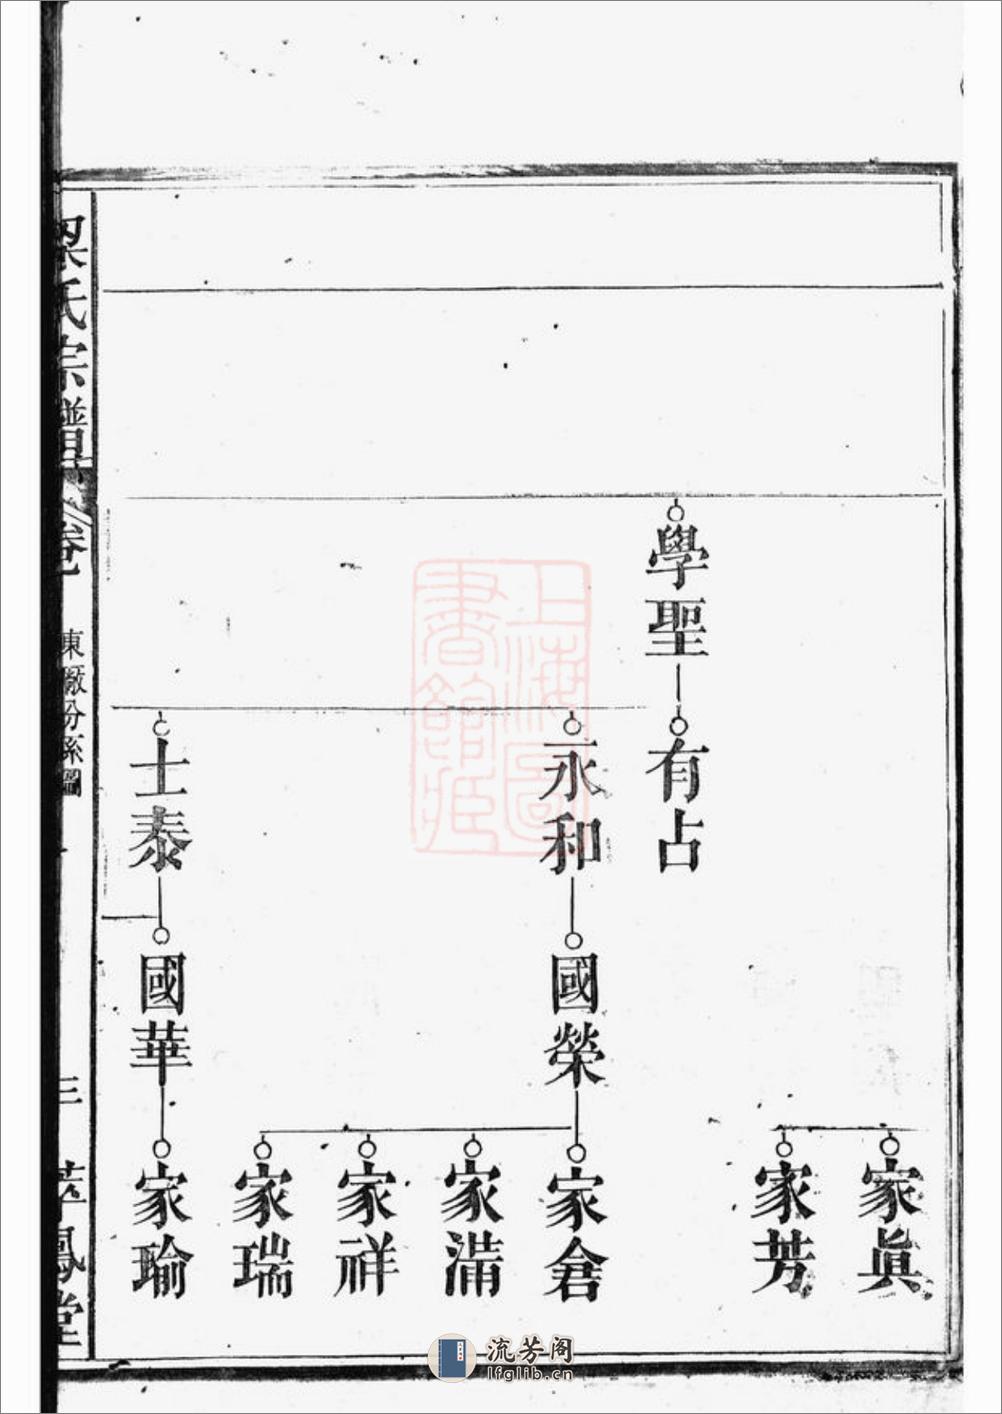 家眞
家芳
學聖
有占
永和
國榮
家倉
家滿
家祥
家瑞
士泰
國華
家瑜
梁氏宗譜
卷
東厫分系圖
三
萃鳳堂
上海圖
書館藏
流芳阁
lfglib.cn